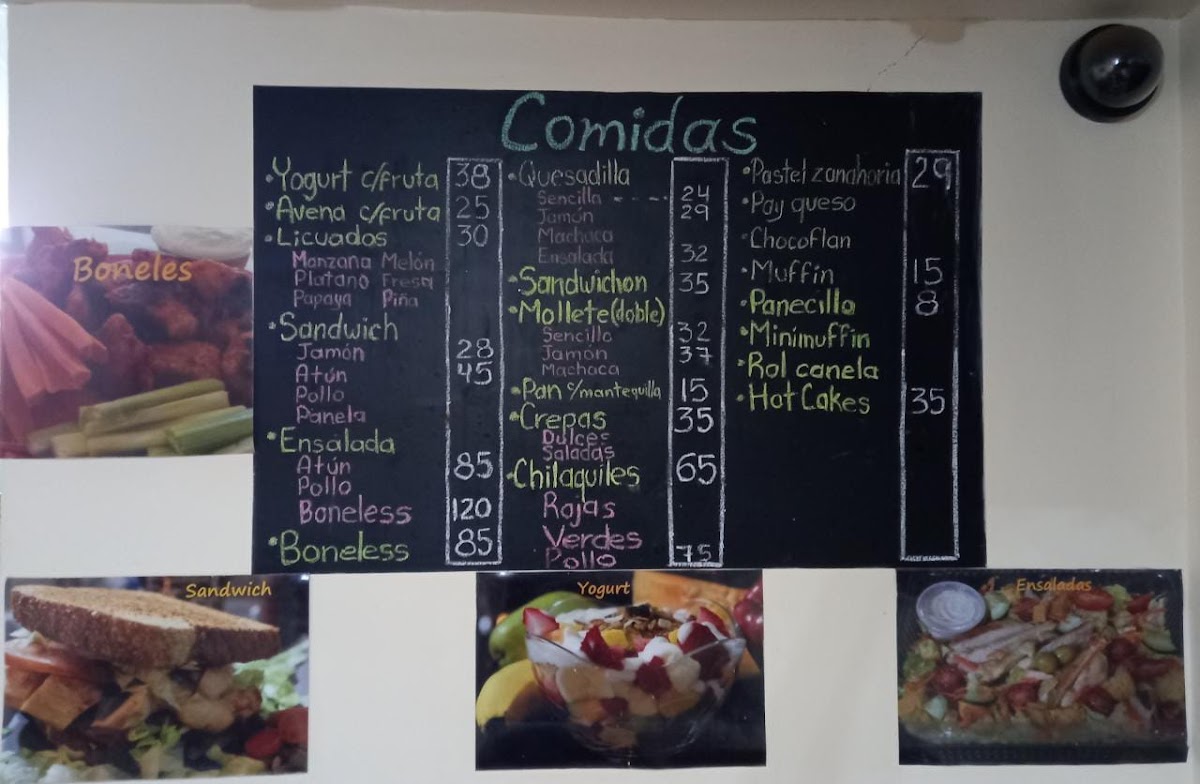 Comidas
Yogurt c/fruta 38
Avena c/fruta 25
Licuados 30
Manzana Melón
Platano Fresa
Papaya Piña
Sandwich
Jamón 28
Atún 45
Pollo
Panela
Ensalada
Atún 85
Pollo
Boneless 120
Boneless 85
Quesadilla
Sencilla ---- 24
Jamón 29
Machaca
Ensalada 32
Sandwichon 35
Mollete(doble)
Sencillo 32
Jamón 37
Machaca
Pan c/mantequilla 15
Crepas 35
Dulces
Saladas
Chilaquiles 65
Rojas
Verdes
Pollo 75
Pastel zanahoria 29
Pay queso
Chocoflan
Muffin 15
Panecillo 8
Minimuffin
Rol canela
Hot Cakes 35
Boneles
Sandwich
Yogurt
Ensaladas